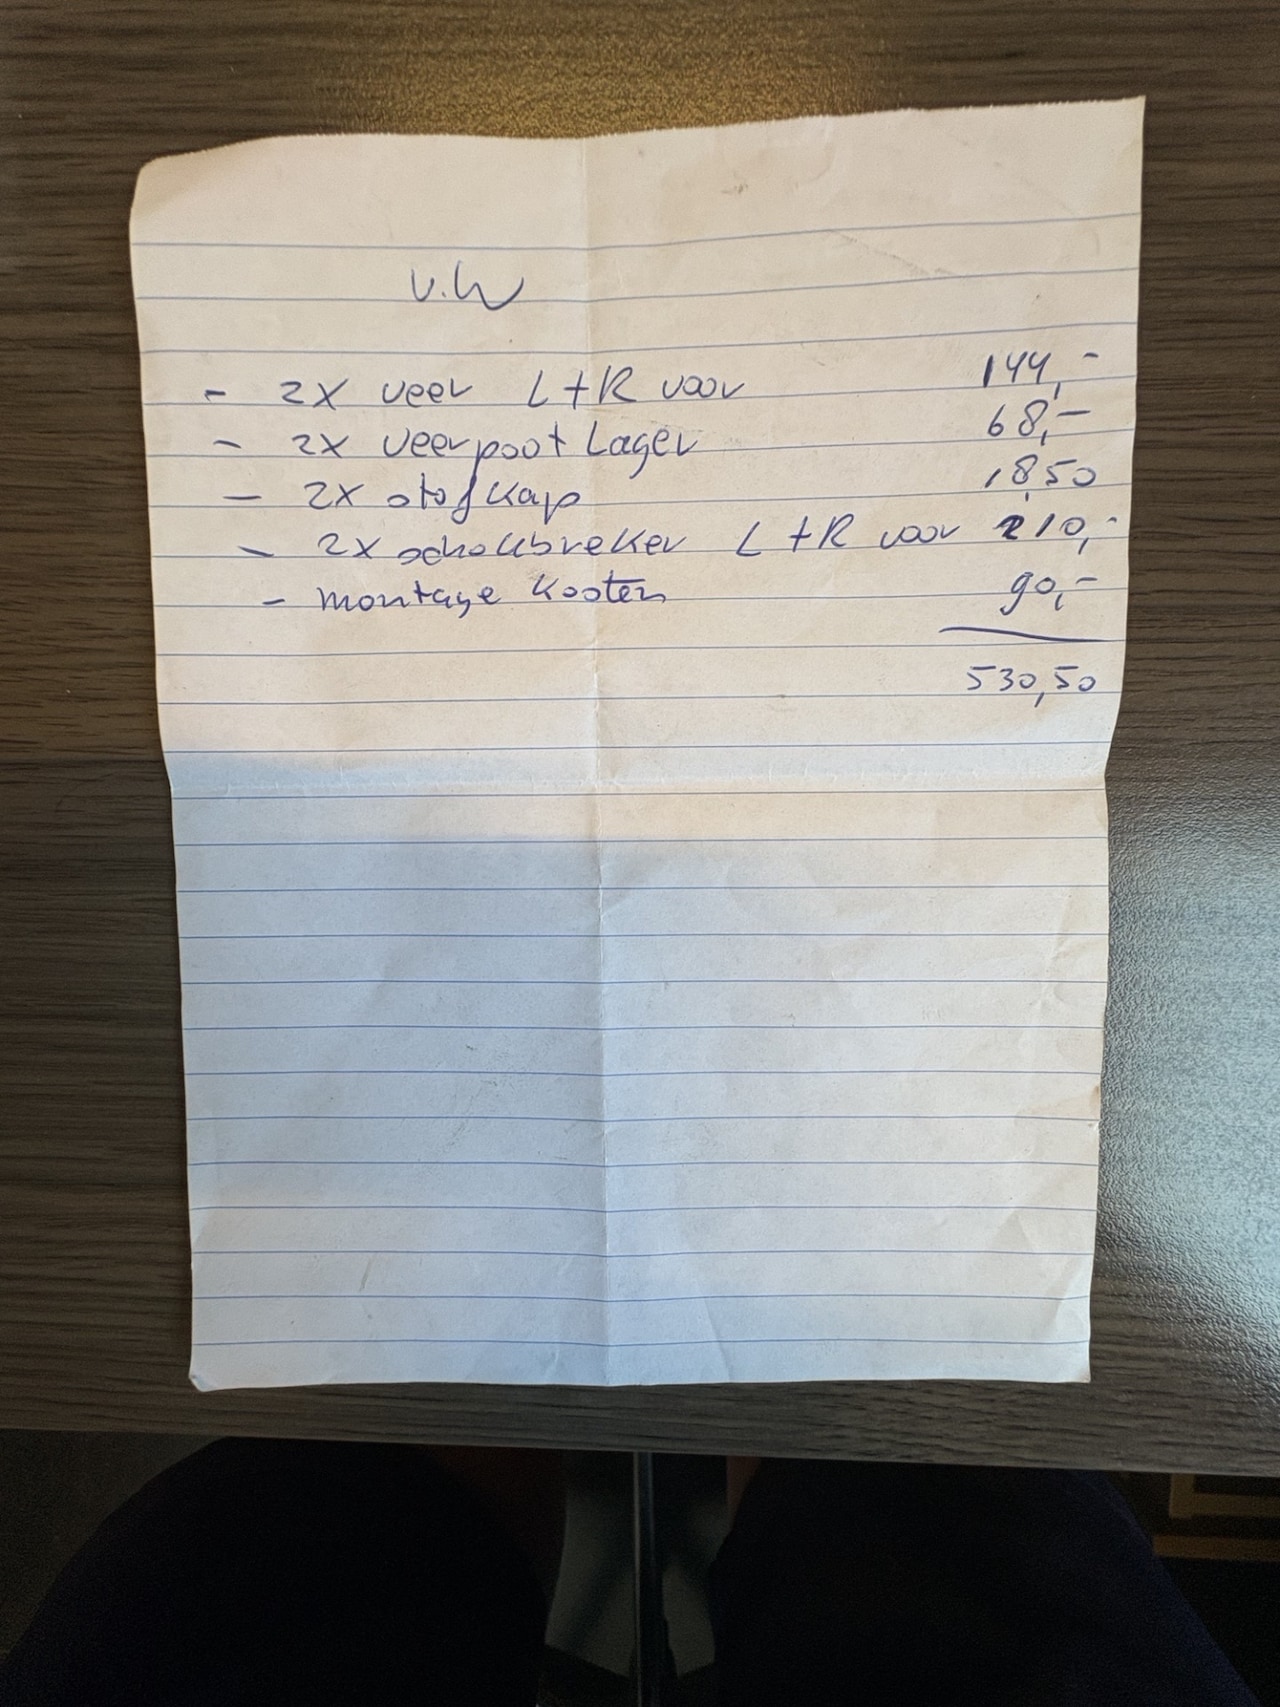 v.W
- 2x veer L+R voor 144,-
- 2x veerpoot Lager 68,-
- 2x stofkap 18,50
- 2x schokbreker L+R voor 210,-
- montage kosten 90,-
530,50